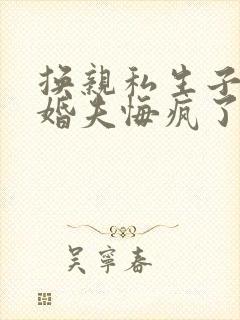 换亲私生子
婚夫悔疯了
吴宁春